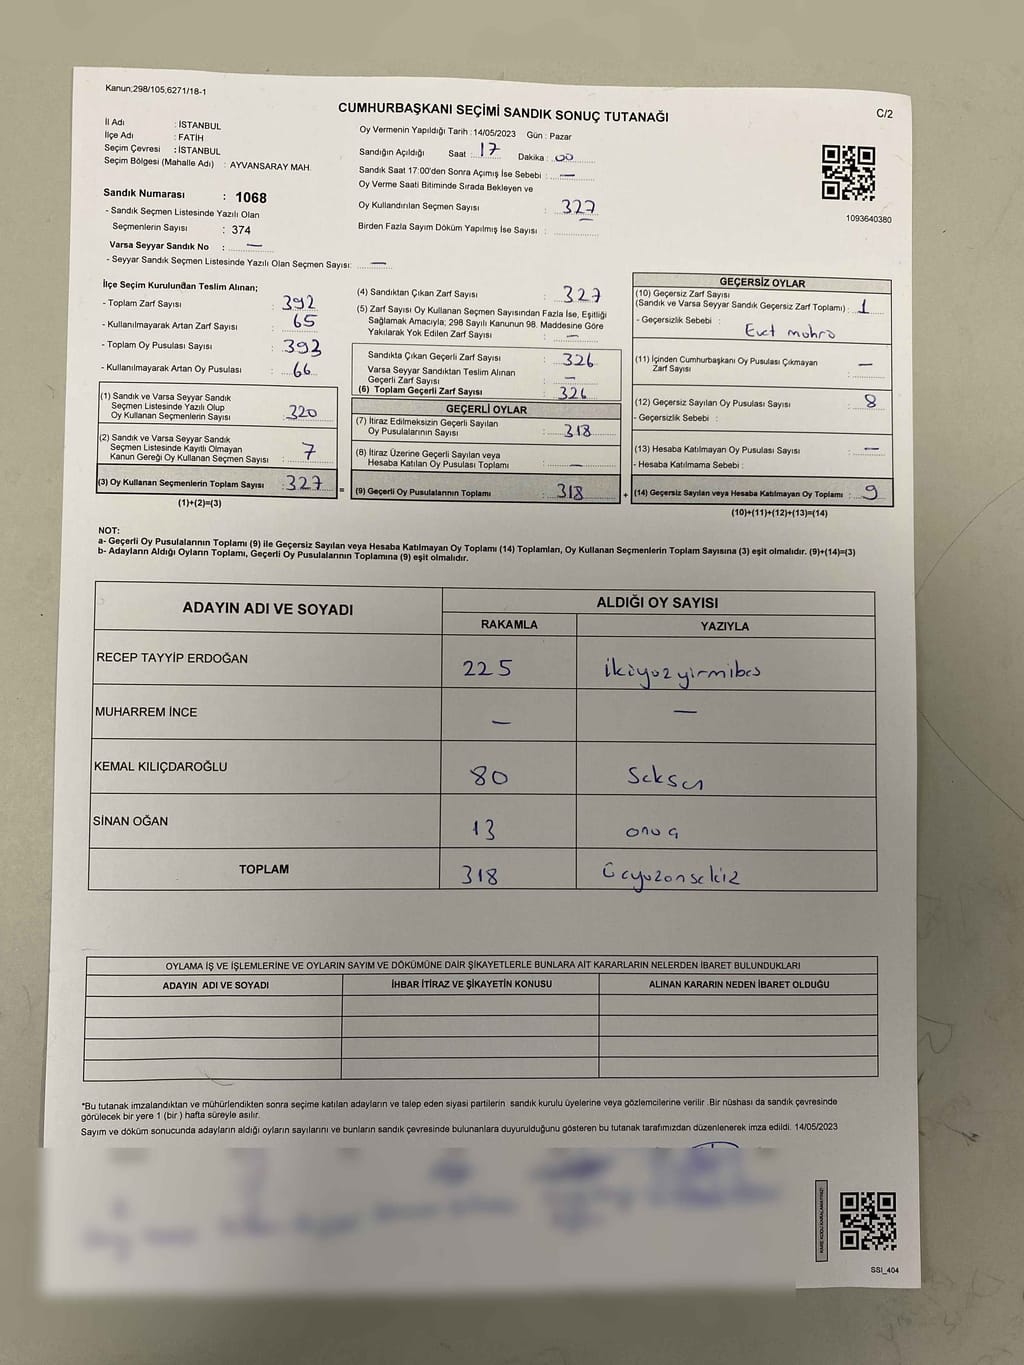 Kanun;298/105,6271/18-1
CUMHURBAŞKANI SEÇİMİ SANDIK SONUÇ TUTANAĞI
C/2
İl Adı : İSTANBUL
İlçe Adı : FATİH
Seçim Çevresi : İSTANBUL
Seçim Bölgesi (Mahalle Adı) : AYVANSARAY MAH.
Sandık Numarası : 1068
- Sandık Seçmen Listesinde Yazılı Olan
Seçmenlerin Sayısı : 374
Varsa Seyyar Sandık No : —
- Seyyar Sandık Seçmen Listesinde Yazılı Olan Seçmen Sayısı: —
Oy Vermenin Yapıldığı Tarih : 14/05/2023 Gün : Pazar
Sandığın Açıldığı Saat : 17 Dakika : 00
Sandık Saat 17:00'den Sonra Açımış İse Sebebi : —
Oy Verme Saati Bitiminde Sırada Bekleyen ve
Oy Kullandırılan Seçmen Sayısı : 327
Birden Fazla Sayım Döküm Yapılmış İse Sayısı :
1093640380
İlçe Seçim Kurulundan Teslim Alınan;
- Toplam Zarf Sayısı : 392
- Kullanılmayarak Artan Zarf Sayısı : 65
- Toplam Oy Pusulası Sayısı : 393
- Kullanılmayarak Artan Oy Pusulası : 66
(1) Sandık ve Varsa Seyyar Sandık
Seçmen Listesinde Yazılı Olup
Oy Kullanan Seçmenlerin Sayısı : 320
(2) Sandık ve Varsa Seyyar Sandık
Seçmen Listesinde Kayıtlı Olmayan
Kanun Gereği Oy Kullanan Seçmen Sayısı : 7
(3) Oy Kullanan Seçmenlerin Toplam Sayısı : 327 =
(1)+(2)=(3)
(4) Sandıktan Çıkan Zarf Sayısı : 327
(5) Zarf Sayısı Oy Kullanan Seçmen Sayısından Fazla İse, Eşitliği
Sağlamak Amacıyla; 298 Sayılı Kanunun 98. Maddesine Göre
Yakılarak Yok Edilen Zarf Sayısı : —
Sandıkta Çıkan Geçerli Zarf Sayısı : 326
Varsa Seyyar Sandıktan Teslim Alınan
Geçerli Zarf Sayısı : —
(6) Toplam Geçerli Zarf Sayısı : 326
GEÇERLİ OYLAR
(7) İtiraz Edilmeksizin Geçerli Sayılan
Oy Pusulalarının Sayısı : 318
(8) İtiraz Üzerine Geçerli Sayılan veya
Hesaba Katılan Oy Pusulası Toplamı : —
(9) Geçerli Oy Pusulalarının Toplamı : 318 +
GEÇERSİZ OYLAR
(10) Geçersiz Zarf Sayısı
(Sandık ve Varsa Seyyar Sandık Geçersiz Zarf Toplamı) : 1
- Geçersizlik Sebebi : Evet mührü
(11) İçinden Cumhurbaşkanı Oy Pusulası Çıkmayan
Zarf Sayısı : —
(12) Geçersiz Sayılan Oy Pusulası Sayısı : 8
- Geçersizlik Sebebi :
(13) Hesaba Katılmayan Oy Pusulası Sayısı : —
- Hesaba Katılmama Sebebi :
(14) Geçersiz Sayılan veya Hesaba Katılmayan Oy Toplamı : 9
(10)+(11)+(12)+(13)=(14)
NOT:
a- Geçerli Oy Pusulalarının Toplamı (9) ile Geçersiz Sayılan veya Hesaba Katılmayan Oy Toplamı (14) Toplamları, Oy Kullanan Seçmenlerin Toplam Sayısına (3) eşit olmalıdır. (9)+(14)=(3)
b- Adayların Aldığı Oyların Toplamı, Geçerli Oy Pusulalarının Toplamına (9) eşit olmalıdır.
ADAYIN ADI VE SOYADI ALDIĞI OY SAYISI
RAKAMLA YAZIYLA
RECEP TAYYİP ERDOĞAN 225 ikiyüzyirmibeş
MUHARREM İNCE — —
KEMAL KILIÇDAROĞLU 80 Seksen
SİNAN OĞAN 13 onüç
TOPLAM 318 Üçyüzonsekiz
OYLAMA İŞ VE İŞLEMLERİNE VE OYLARIN SAYIM VE DÖKÜMÜNE DAİR ŞİKAYETLERLE BUNLARA AİT KARARLARIN NELERDEN İBARET BULUNDUKLARI
ADAYIN ADI VE SOYADI İHBAR İTİRAZ VE ŞİKAYETİN KONUSU ALINAN KARARIN NEDEN İBARET OLDUĞU
*Bu tutanak imzalandıktan ve mühürlendikten sonra seçime katılan adayların ve talep eden siyasi partilerin sandık kurulu üyelerine veya gözlemcilerine verilir .Bir nüshası da sandık çevresinde
görülecek bir yere 1 (bir ) hafta süreyle asılır.
Sayım ve döküm sonucunda adayların aldığı oyların sayılarını ve bunların sandık çevresinde bulunanlara duyurulduğunu gösteren bu tutanak tarafımızdan düzenlenerek imza edildi. 14/05/2023
SSI_404